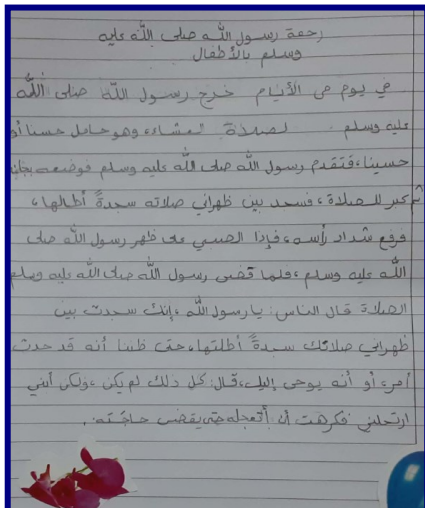 رحمة رسول الله صلى الله عليه
وسلم بالأطفال
في يوم من الأيام خرج رسول الله صلى الله
عليه وسلم لصلاة العشاء، وهو حامل حسنا أو
حسينا، فتقدم رسول الله صلى الله عليه وسلم فوضعه بجانبه
ثم كبر للصلاة، فسجد بين ظهراني صلاته سجدةً أطالها،
فرفع شداد رأسه، فإذا الصبي على ظهر رسول الله صلى
الله عليه وسلم، فلما قضى رسول الله صلى الله عليه وسلم
الصلاة قال الناس: يا رسول الله، إنك سجدت بين
ظهراني صلاتك سجدةً أطلتها، حتى ظننا أنه قد حدث
أمر، أو أنه يوحى إليك، قال: كل ذلك لم يكن، ولكن ابني
ارتحلني فكرهت أن أعجله حتى يقضي حاجته.